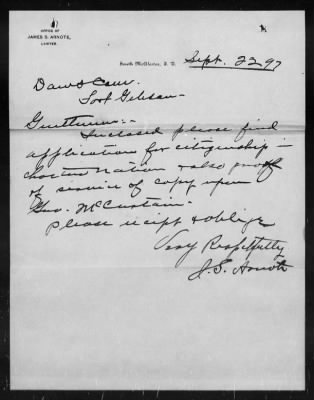 OFFICE OF
JAMES S. ARNOTE,
LAWYER.
South McAlester, I. T. Sept. 22 97
Dawes Com.
Fort Gibson-
Gentlemen:-
Inclosed please find
application for citizenship in
Choctaw Nation & also proof
of service of copy upon
Gov. McCurtain.
Please receipt & oblige
Very Respectfully
J. S. Arnote